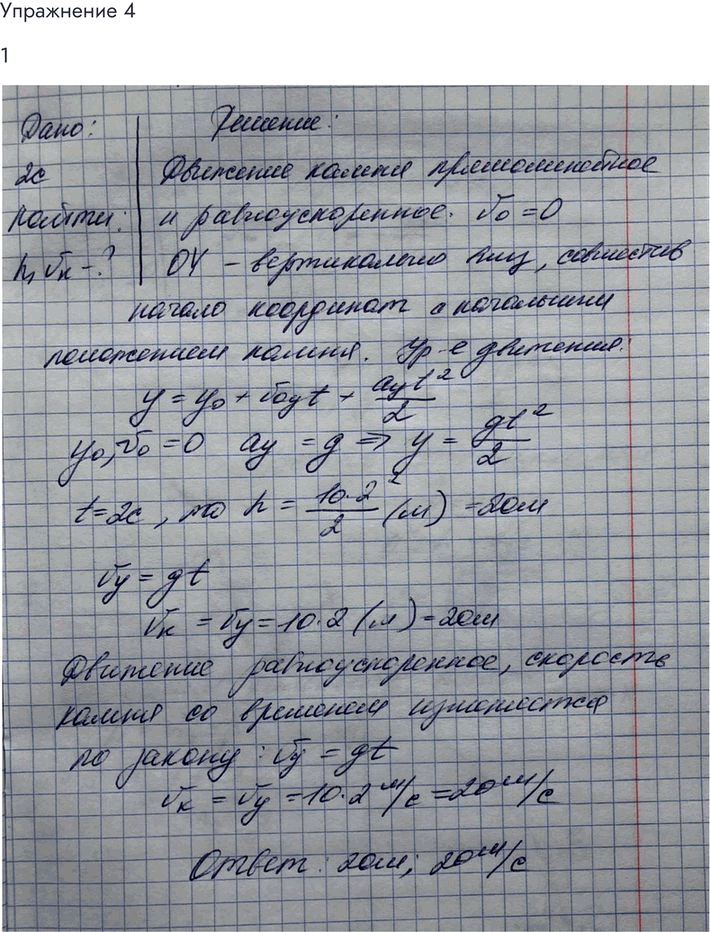 Упражнение 4
1
Дано: Решение:
2с Движение камня прямолинейное
Найти: и равноускоренное. v₀ = 0
h, vₖ - ? OY – вертикально вниз, совместив
начало координат с начальным
положением камня. Ур-е движения:
y = y₀ + v₀yt + ayt²/2
y₀, v₀ = 0 ay = g ⇒ y = gt²/2
t = 2с, то h = 10·2²/2 (м) = 20м
vy = gt
vₖ = vy = 10·2 (м) = 20м
Движение равноускоренное, скорость
камня со временем изменяется
по закону: vy = gt
vₖ = vy = 10·2 м/с = 20 м/с
Ответ: 20м; 20 м/с